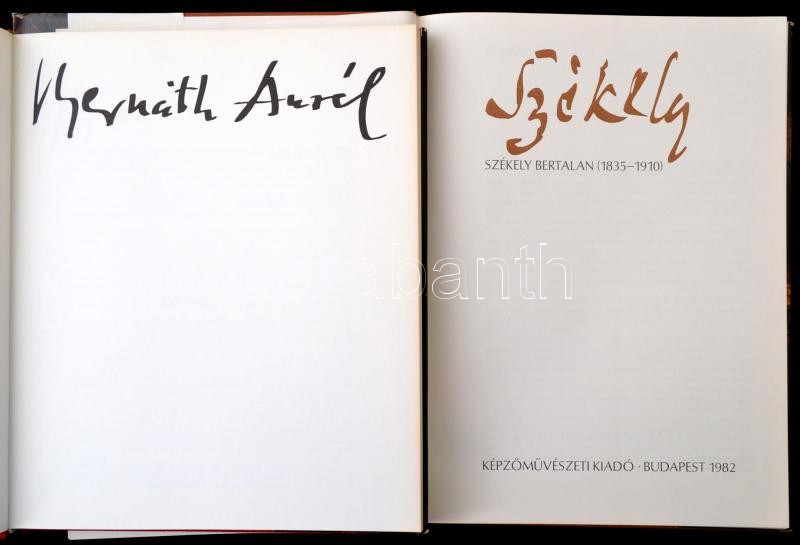 Bernáth Aurél
Székely
SZÉKELY BERTALAN (1835–1910)
KÉPZŐMŰVÉSZETI KIADÓ · BUDAPEST 1982
Darabanth